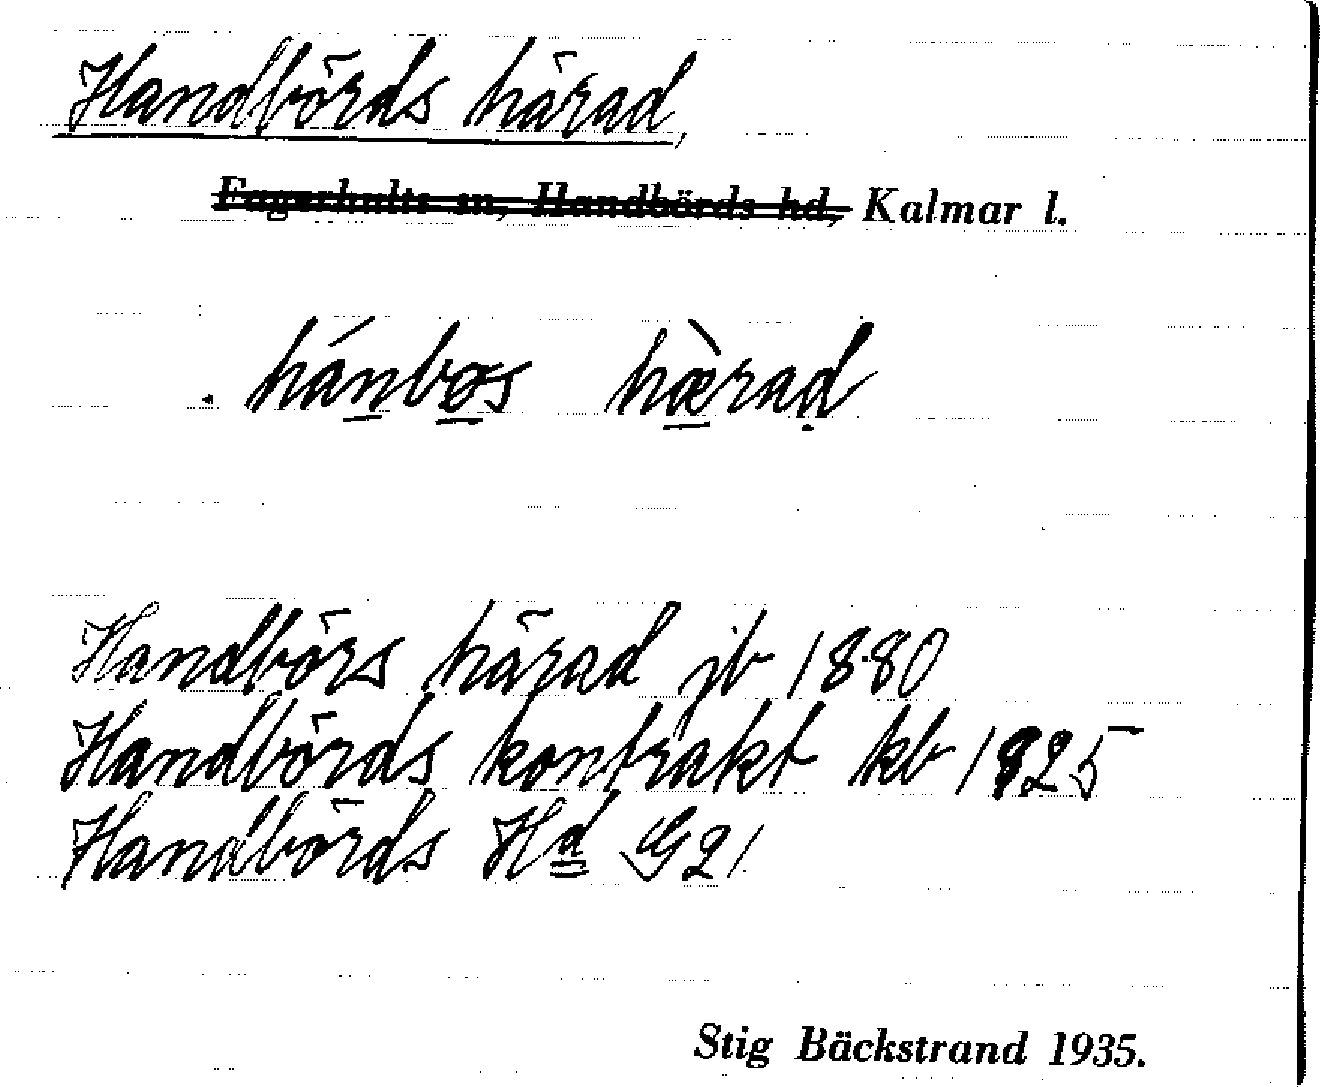 Handbörds härad,
Fagerhults sn, Handbörds hd, Kalmar l.
hánbøs hæ̀rad
Handbörs härad jb 1880
Handbörds kontrakt kb 1925
Handbörds Hd G 21
Stig Bäckstrand 1935.